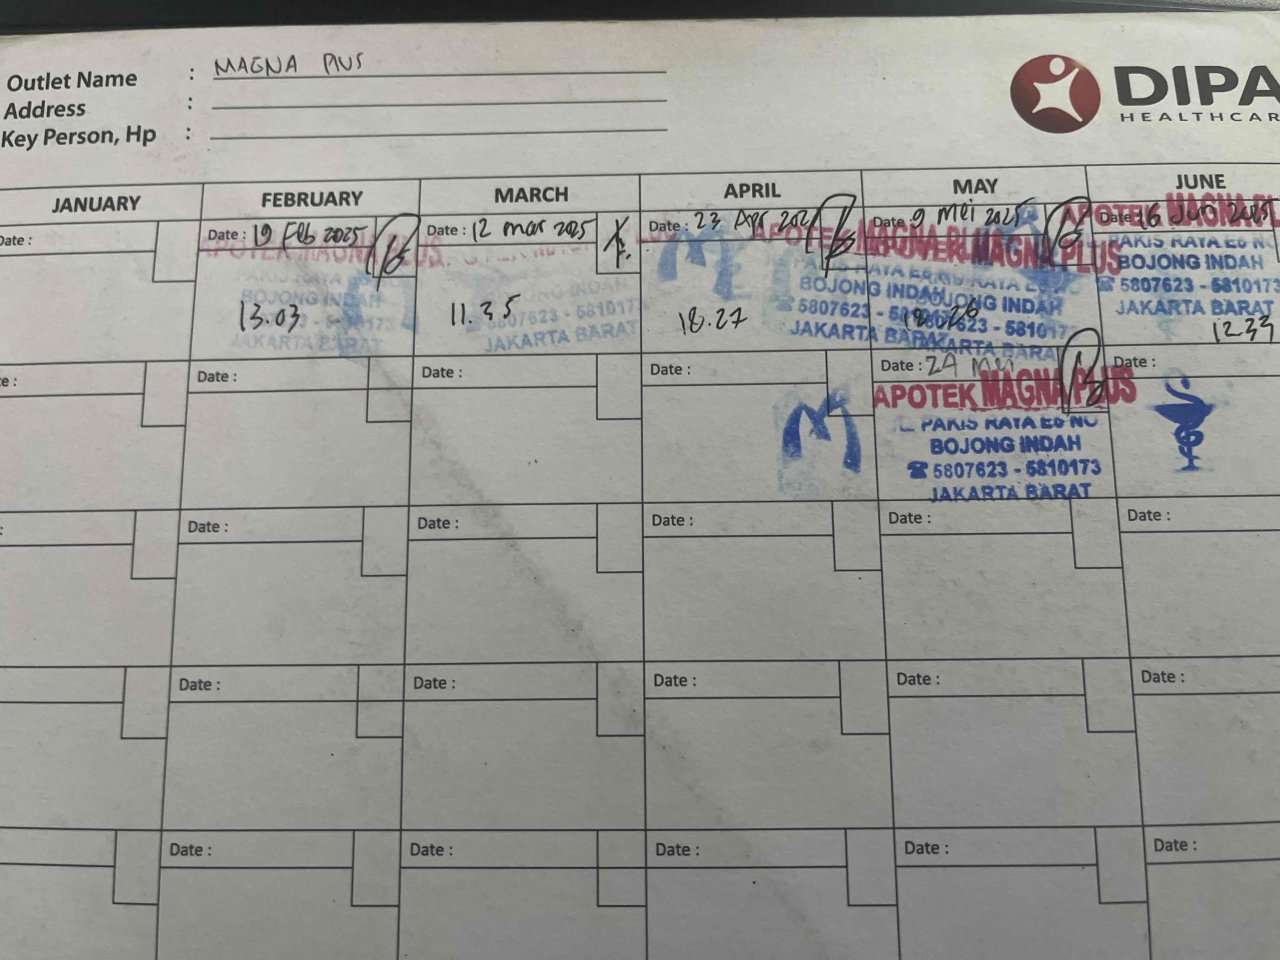 Outlet Name : MAGNA PLUS
Address :
Key Person, Hp :
DIPA
HEALTHCAR
JANUARY FEBRUARY MARCH APRIL MAY JUNE
Date : Date : 19 Feb 2025 Date : 12 mar 2025 Date : 23 Apr 202 Date : 9 Mei 2025 Date : 16 Jun 2025
APOTEK MAGNA PLUS APOTEK MAGNA PLUS APOTEK MAGNA PLUS APOTEK MAGNA PL
PAKIS RAYA E8 NO
BOJONG INDAH BOJONG INDAH BOJONG INDAH BOJONG INDAH
5807623 - 5810173 5807623 - 5810173 5807623 - 5810173
JAKARTA BARAT JAKARTA BARAT JAKARTA BARA JAKARTA BARA JAKARTA BARAT
13.03 11.35 18.27 12.33
Date : Date : Date : Date : 24 Mei Date :
APOTEK MAGNA PLUS
PAKIS RAYA E8 NO
BOJONG INDAH
5807623 - 5810173
JAKARTA BARAT
Date : Date : Date : Date : Date :
Date : Date : Date : Date : Date :
Date : Date : Date : Date : Date :